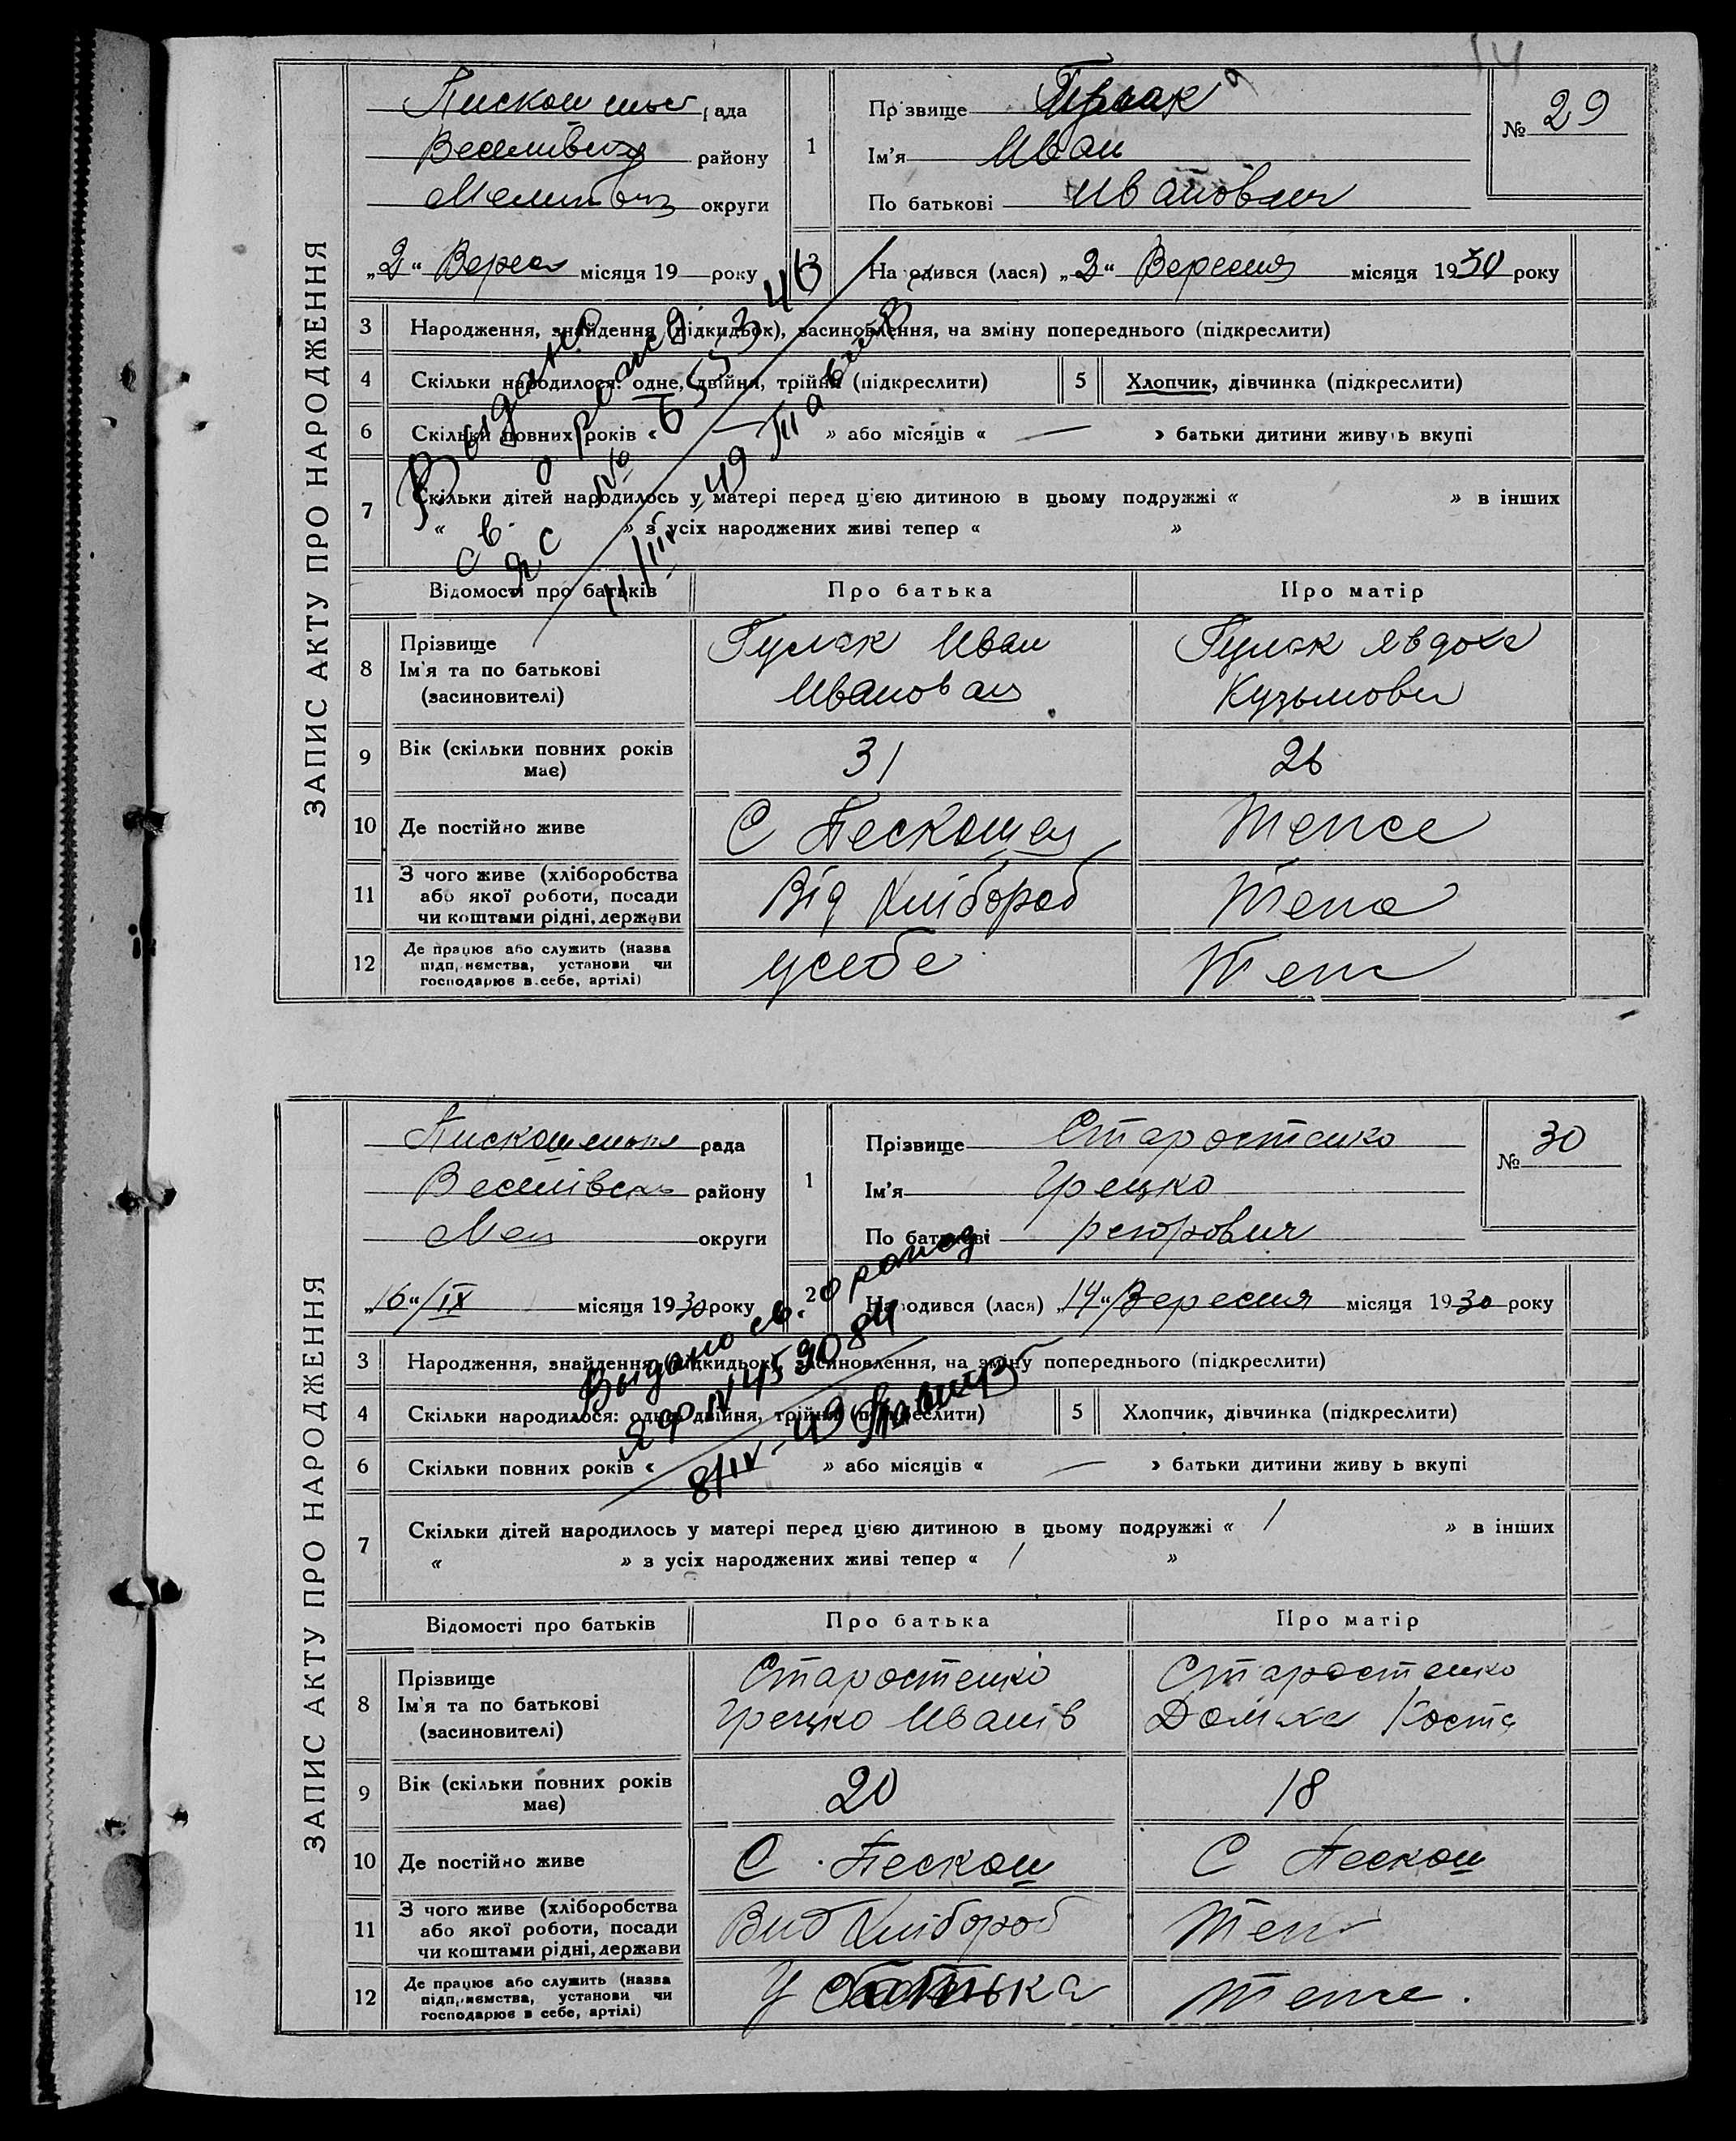 14
ЗАПИС АКТУ ПРО НАРОДЖЕННЯ
рада
району
округи
„2“ місяця 19 року
1
Прізвище
Ім'я Иван
По батькові Иванович
№ 29
2
Народився (лася) „2“ Вересня місяця 1930 року
3 Народження, знайдення (підкидьок), засиновлення, на зміну попереднього (підкреслити)
4 Скільки народилося: одне, двійня, трійня (підкреслити)
5 Хлопчик, дівчинка (підкреслити)
6 Скільки повних років « — » або місяців « — » батьки дитини живуть вкупі
7 Скільки дітей народилось у матері перед цією дитиною в цьому подружжі « » в інших
« » з усіх народжених живі тепер « »
Выдано
св. о рожд.
ЯС № 655346
11/III 49
Відомості про батьків Про батька Про матір
8 Прізвище
Ім'я та по батькові
(засиновителі)
Гулак Иван
Гулак Явдоха
Кузьмовн
9 Вік (скільки повних років
має)
31 26
10 Де постійно живе С Тежсе
11 З чого живе (хліборобства
або якої роботи, посади
чи коштами рідні, держави
Від Хлібороб
12 Де працює або служить (назва
підприємства, установи чи
господарює в себе, артілі)
усебе
ЗАПИС АКТУ ПРО НАРОДЖЕННЯ
рада
району
Мел округи
„16“/IX місяця 1930 року
1
Прізвище Старостенко
Ім'я Грецко
По батькові
№ 30
2
Народився (лася) „14“ Вересня місяця 1930 року
3 Народження, знайдення (підкидьок), засиновлення, на зміну попереднього (підкреслити)
4 Скільки народилося: одне, двійня, трійня (підкреслити)
5 Хлопчик, дівчинка (підкреслити)
6 Скільки повних років « » або місяців « — » батьки дитини живуть вкупі
7 Скільки дітей народилось у матері перед цією дитиною в цьому подружжі « 1 » в інших
« » з усіх народжених живі тепер « 1 »
Выдано св. о рожд.
8/IV-49
Відомості про батьків Про батька Про матір
8 Прізвище
Ім'я та по батькові
(засиновителі)
Старостенко
Грецко Иванів
Старостенко
Домха Коста
9 Вік (скільки повних років
має)
20 18
10 Де постійно живе С. Пескош С Пескош
11 З чого живе (хліборобства
або якої роботи, посади
чи коштами рідні, держави
Хлібороб
12 Де працює або служить (назва
підприємства, установи чи
господарює в себе, артілі)
У батька Теже.